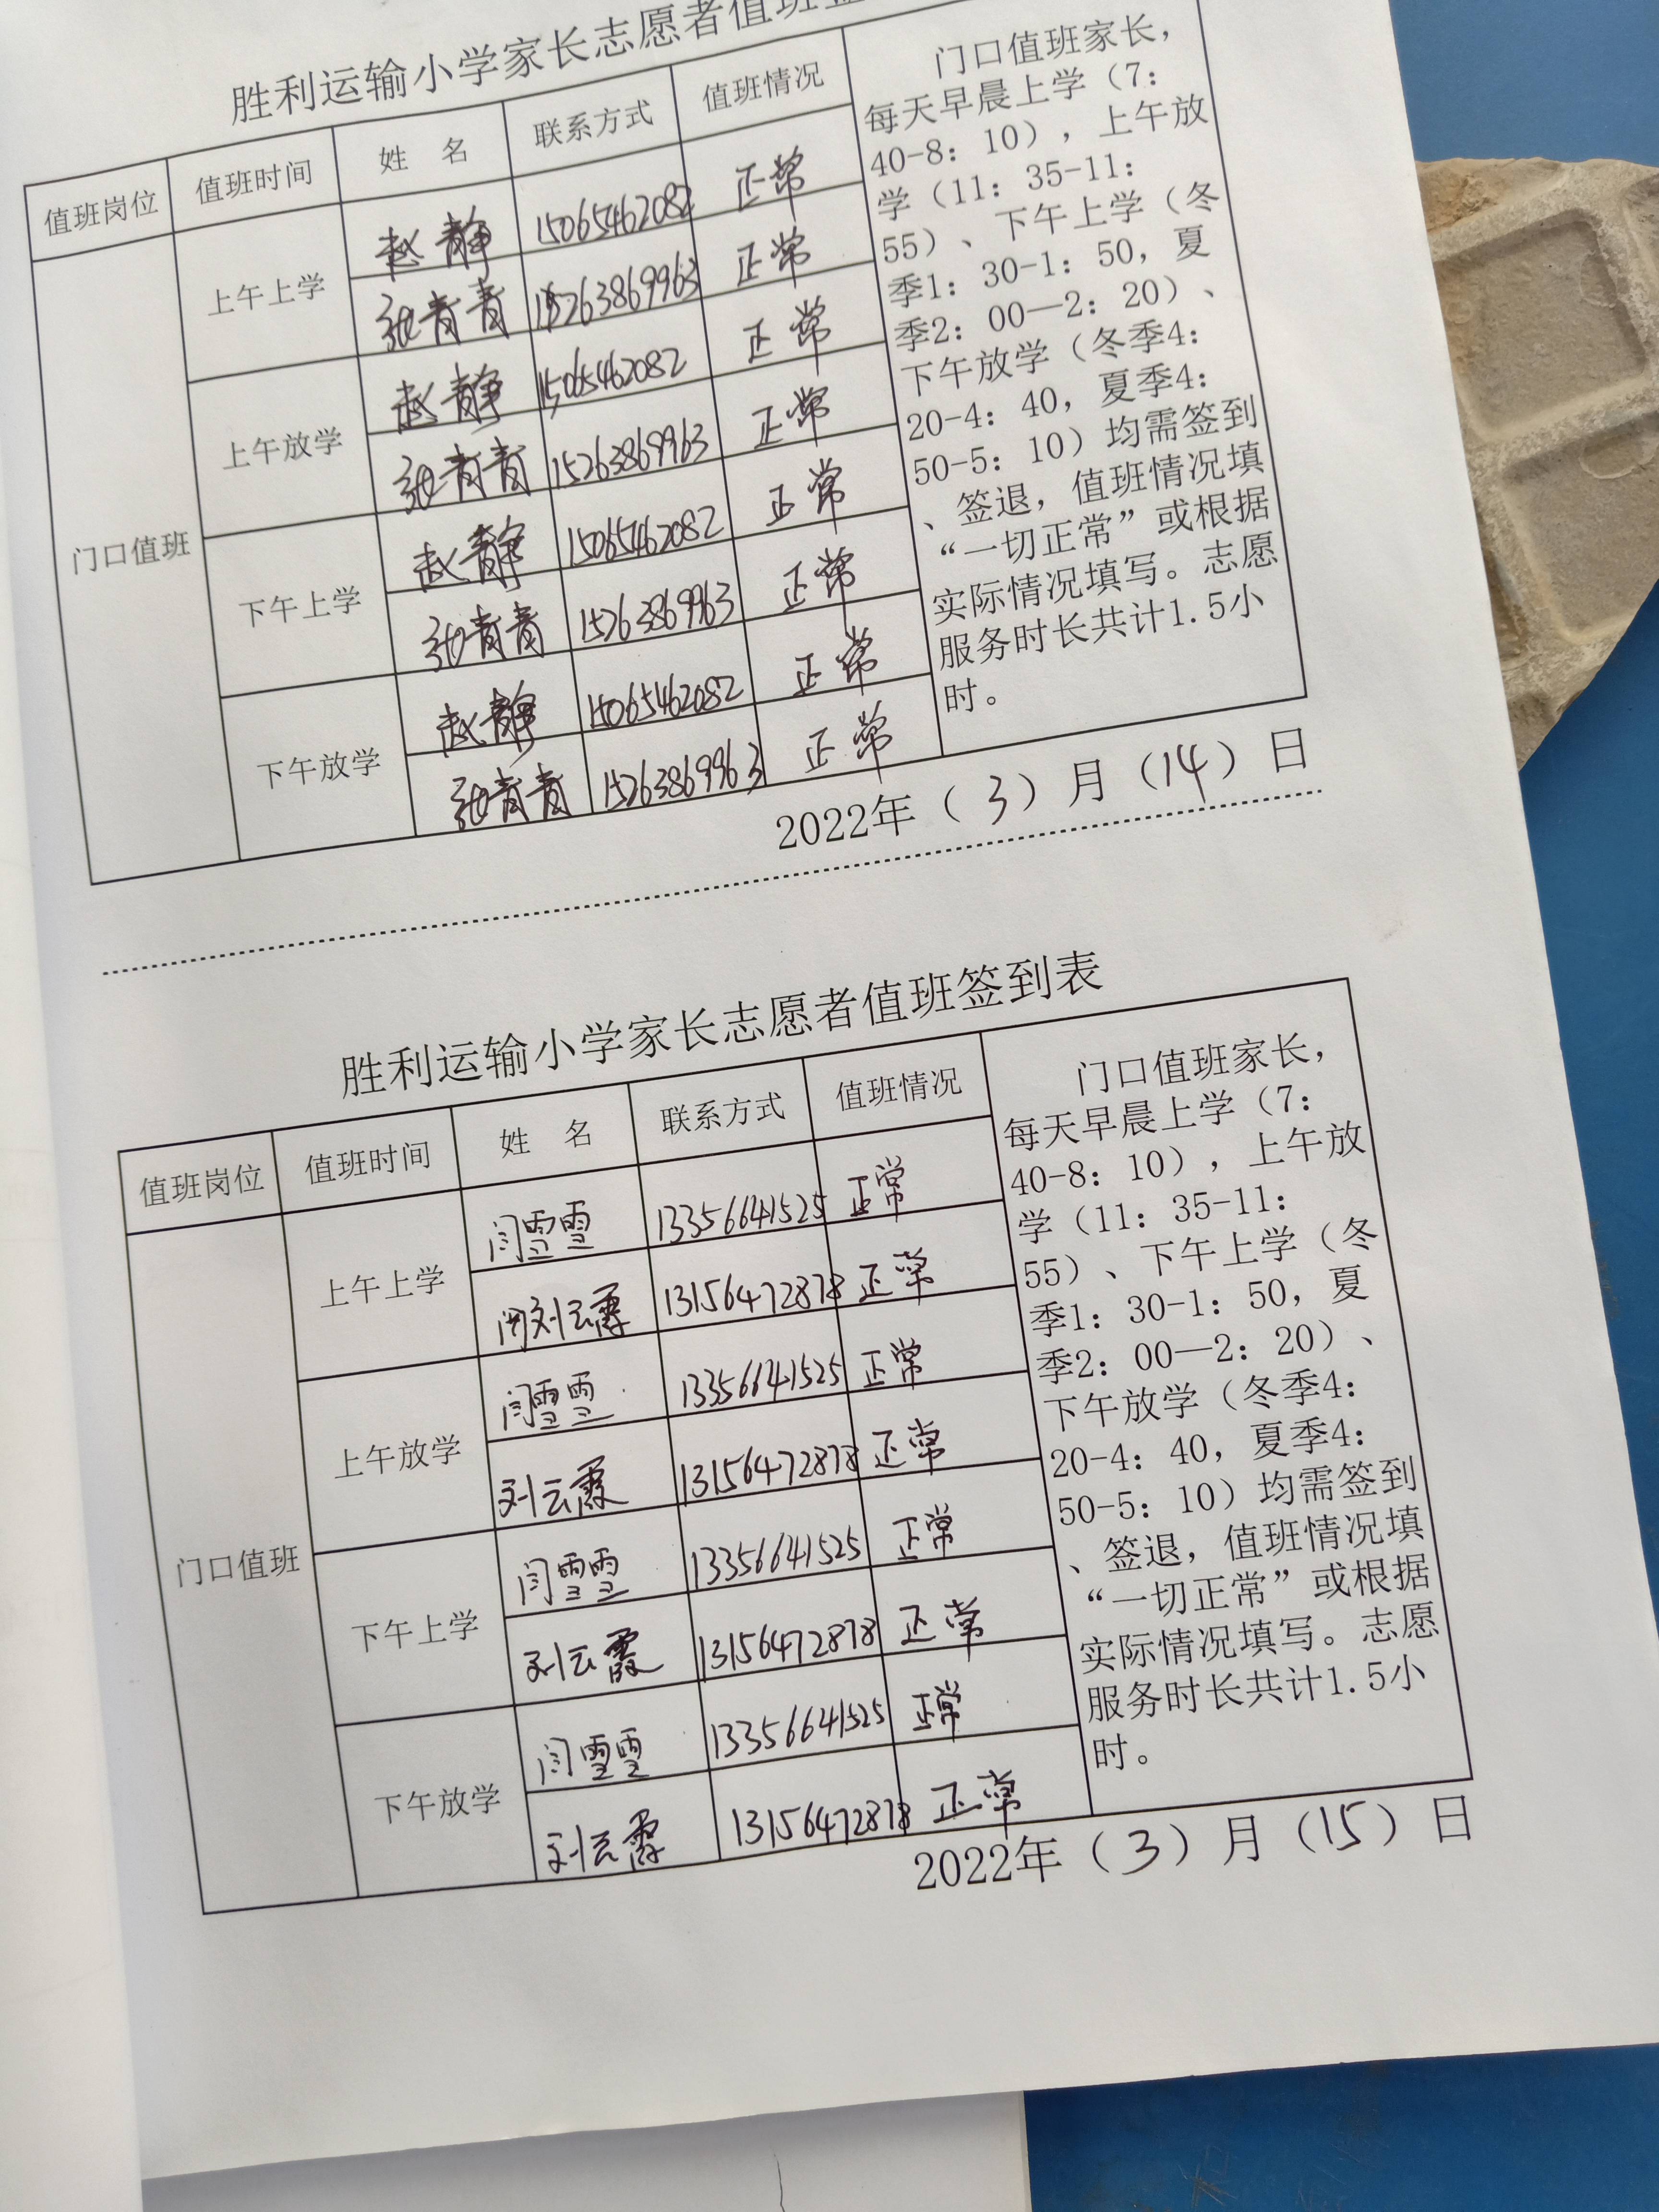 胜利运输小学家长志愿者值班签
值班岗位 值班时间 姓 名 联系方式 值班情况
门口值班
上午上学
赵静 15065462082 正常
张青青 15263869963 正常
上午放学
赵静 15065462082 正常
张青青 15263869963 正常
下午上学
赵静 15065462082 正常
张青青 15263869963 正常
下午放学
赵静 15065462082 正常
张青青 15263869963 正常
门口值班家长，
每天早晨上学（7：
40-8：10），上午放
学（11：35-11：
55）、下午上学（冬
季1：30-1：50，夏
季2：00—2：20）、
下午放学（冬季4：
20-4：40，夏季4：
50-5：10）均需签到
、签退，值班情况填
“一切正常”或根据
实际情况填写。志愿
服务时长共计1.5小
时。
2022年（3）月（14）日
胜利运输小学家长志愿者值班签到表
值班岗位 值班时间 姓 名 联系方式 值班情况
门口值班
上午上学
闫雪雪 13356641525 正常
刘云霞 13156472878 正常
上午放学
闫雪雪 13356641525 正常
刘云霞 13156472878 正常
下午上学
闫雪雪 13356641525 正常
刘云霞 13156472878 正常
下午放学
闫雪雪 13356641525 正常
刘云霞 13156472878 正常
门口值班家长，
每天早晨上学（7：
40-8：10），上午放
学（11：35-11：
55）、下午上学（冬
季1：30-1：50，夏
季2：00—2：20）、
下午放学（冬季4：
20-4：40，夏季4：
50-5：10）均需签到
、签退，值班情况填
“一切正常”或根据
实际情况填写。志愿
服务时长共计1.5小
时。
2022年（3）月（15）日